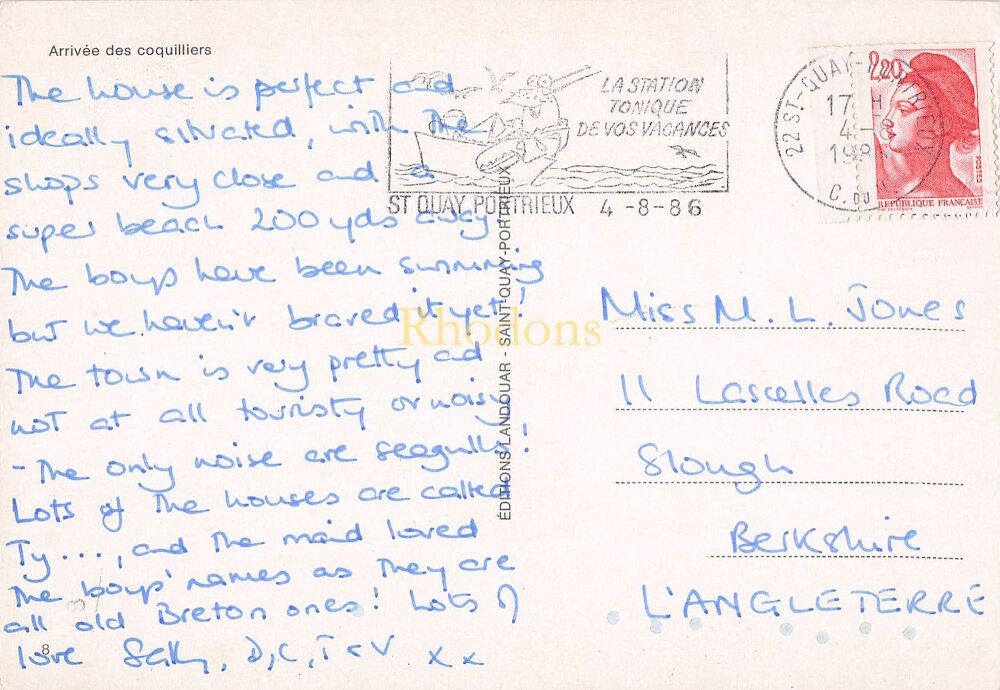 Arrivée des coquilliers
The house is perfect and
ideally situated, with the
shops very close and a
super beach 200yds away.
The boys have been swimming
but we haven't braved it yet!
The town is very pretty and
not at all touristy or noisy
- The only noise are seagulls!
Lots of the houses are called
Ty..., and the maid loved
the boys' names as they are
all old Breton ones! Lots of
love Sally, D, C, T & V x x
8
LA STATION
TONIQUE
DE VOS VACANCES
ST QUAY PORTRIEUX 4-8-86
22 ST-QUAY-PORTRIEUX
17 H
4-8
C. DU N.
2,20
POSTES
REPUBLIQUE FRANÇAISE
ÉDITIONS LANDOUAR - SAINT-QUAY-PORTRIEUX
Rhodons
Miss M. L. Jones
11 Lascelles Road
Slough
Berkshire
L'ANGLETERRE